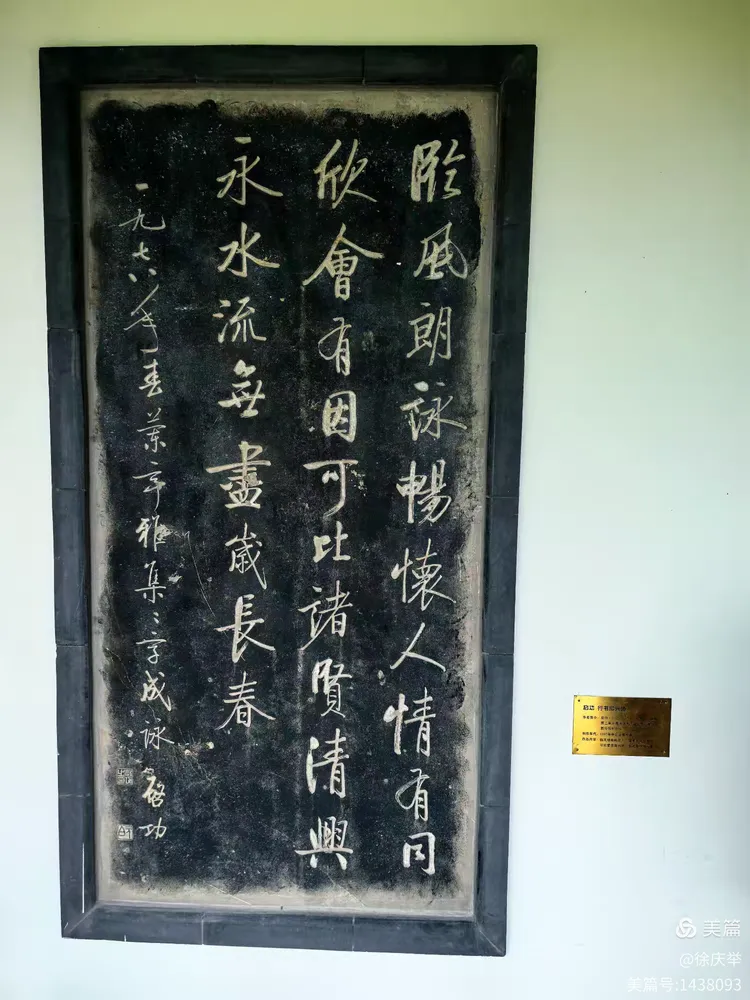 臨風朗詠暢懷人情有同
欣會有因可比諸賢清興
永水流無盡歲長春
一九七八年春蘭亭雅集〻字成詠 啟功
启功 行书
美篇
@徐庆举
美篇号:1438093